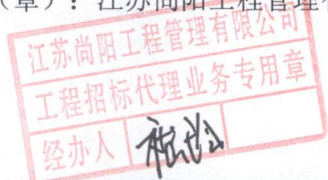 （章）：江苏尚阳工程管理有
江苏尚阳工程管理有限公司
工程招标代理业务专用章
经办人